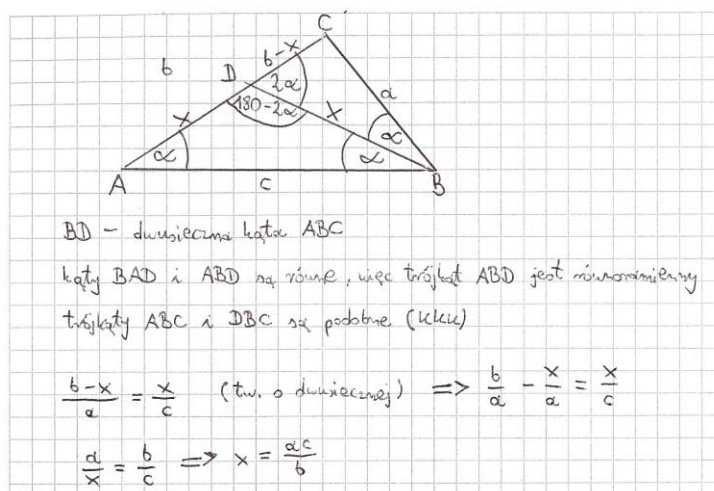 C
b
b-x
D
2α
a
180-2α
x
x
α
α
α
A
c
B
BD - dwusieczna kąta ABC
kąty BAD i ABD są równe, więc trójkąt ABD jest równoramienny
trójkąty ABC i DBC są podobne (KKK)
\frac{b-x}{a} = \frac{x}{c} (tw. o dwusiecznej) => \frac{b}{a} - \frac{x}{a} = \frac{x}{c}
\frac{a}{x} = \frac{b}{c} => x = \frac{ac}{b}